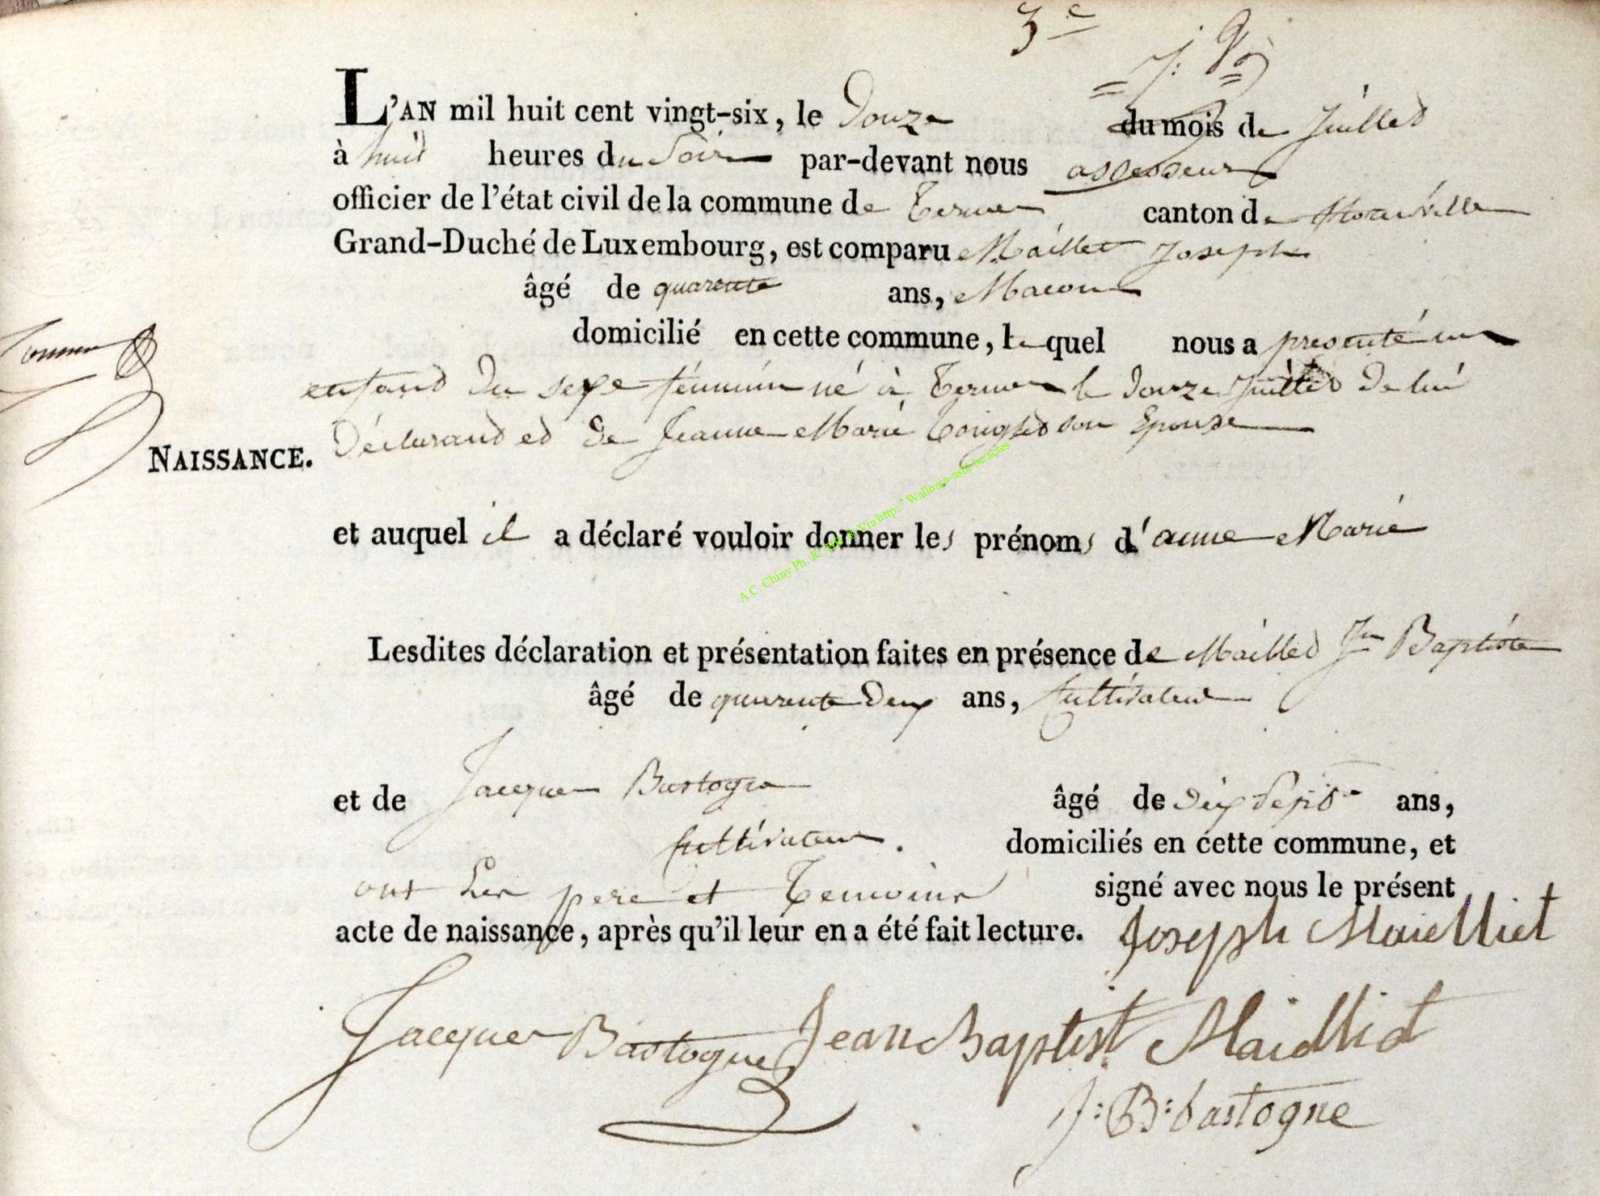 3e
L'AN mil huit cent vingt-six, le Douze du mois de Juillet
à huit heures du Soir par-devant nous assesseur
officier de l'état civil de la commune de Termes canton de florenville
Grand-Duché de Luxembourg, est comparu Maillet Joseph
âgé de quarente ans, Macon
domicilié en cette commune, lequel nous a presenté un
enfant du sexe féminin né à Termes le douze Juillet de lui
Déclarant et de Jeanne Marie son Epouse
NAISSANCE.
et auquel il a déclaré vouloir donner les prénoms d'anne Marie
Lesdites déclaration et présentation faites en présence de Maillet Jn Baptiste
âgé de quarente Deux ans, Cultivateur
et de Jacques Bastogne âgé de Dix Sept ans,
Cultivateur. domiciliés en cette commune, et
ont Les pere et Temoins signé avec nous le présent
acte de naissance, après qu'il leur en a été fait lecture. Joseph Maielliet
Jacques Bastogne Jean Baptist Maidliot
J: B: bastogne